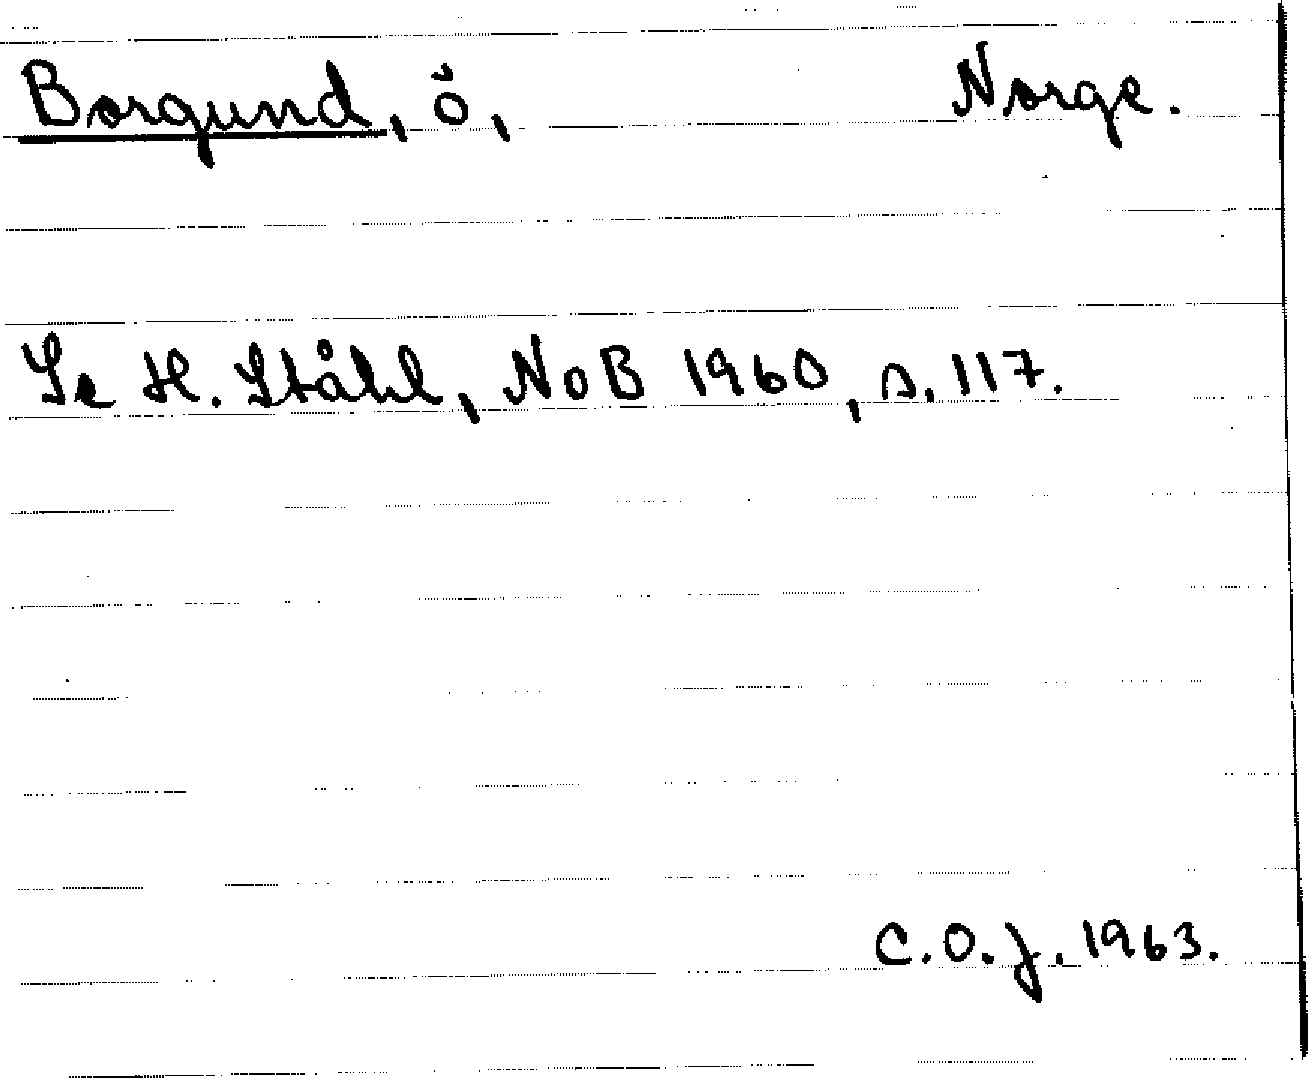 Borgund, ö, Norge.
Se H. Ståhl, NoB 1960, s. 117.
C.O.J. 1963.